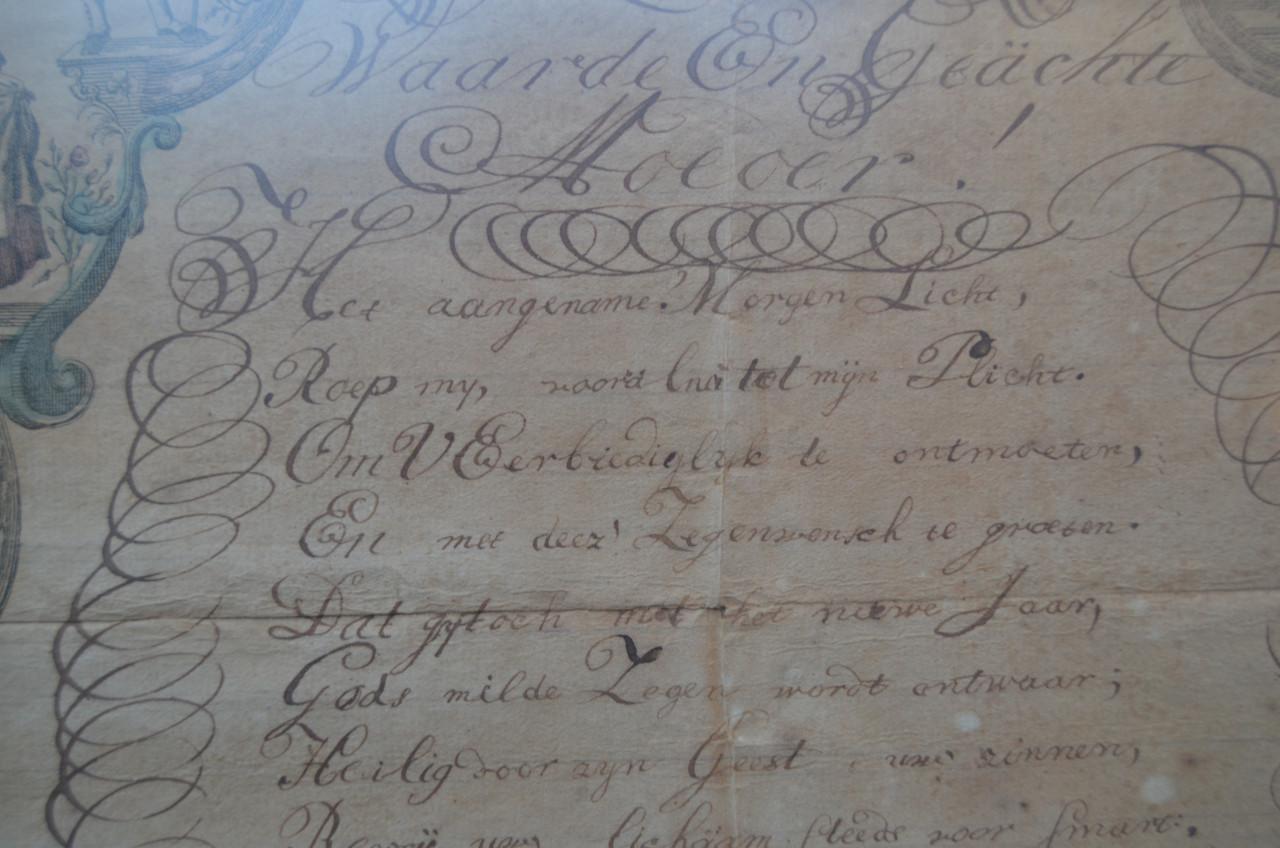 Waarde En Geächte
Moeder!
Het aangename Morgen Licht,
Roep my, voord tot mijn Plicht.
Om V Eerbiediglyk te ontmoeten,
En met deez' Zegenwensch te groeten.
Dat gy toch met het nieuwe Jaar,
Gods milde Zegen wordt ontwaar;
Heilig door zyn Geest uw zinnen,
uw lichäam steeds voor smart.